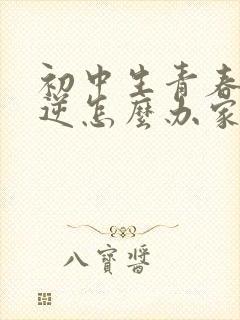 初中生青春
逆怎麼办家
八寶醬